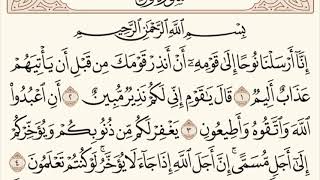 بِسْمِ اللَّهِ الرَّحْمَٰنِ الرَّحِيمِ
إِنَّا أَرْسَلْنَا نُوحًا إِلَىٰ قَوْمِهِ أَنْ أَنذِرْ قَوْمَكَ مِن قَبْلِ أَن يَأْتِيَهُمْ
عَذَابٌ أَلِيمٌ ١ قَالَ يَا قَوْمِ إِنِّي لَكُمْ نَذِيرٌ مُّبِينٌ ٢ أَنِ اعْبُدُوا
اللَّهَ وَاتَّقُوهُ وَأَطِيعُونِ ٣ يَغْفِرْ لَكُم مِّن ذُنُوبِكُمْ وَيُؤَخِّرْكُمْ
إِلَىٰ أَجَلٍ مُّسَمًّى إِنَّ أَجَلَ اللَّهِ إِذَا جَاءَ لَا يُؤَخَّرُ لَوْ كُنتُمْ تَعْلَمُونَ ٤